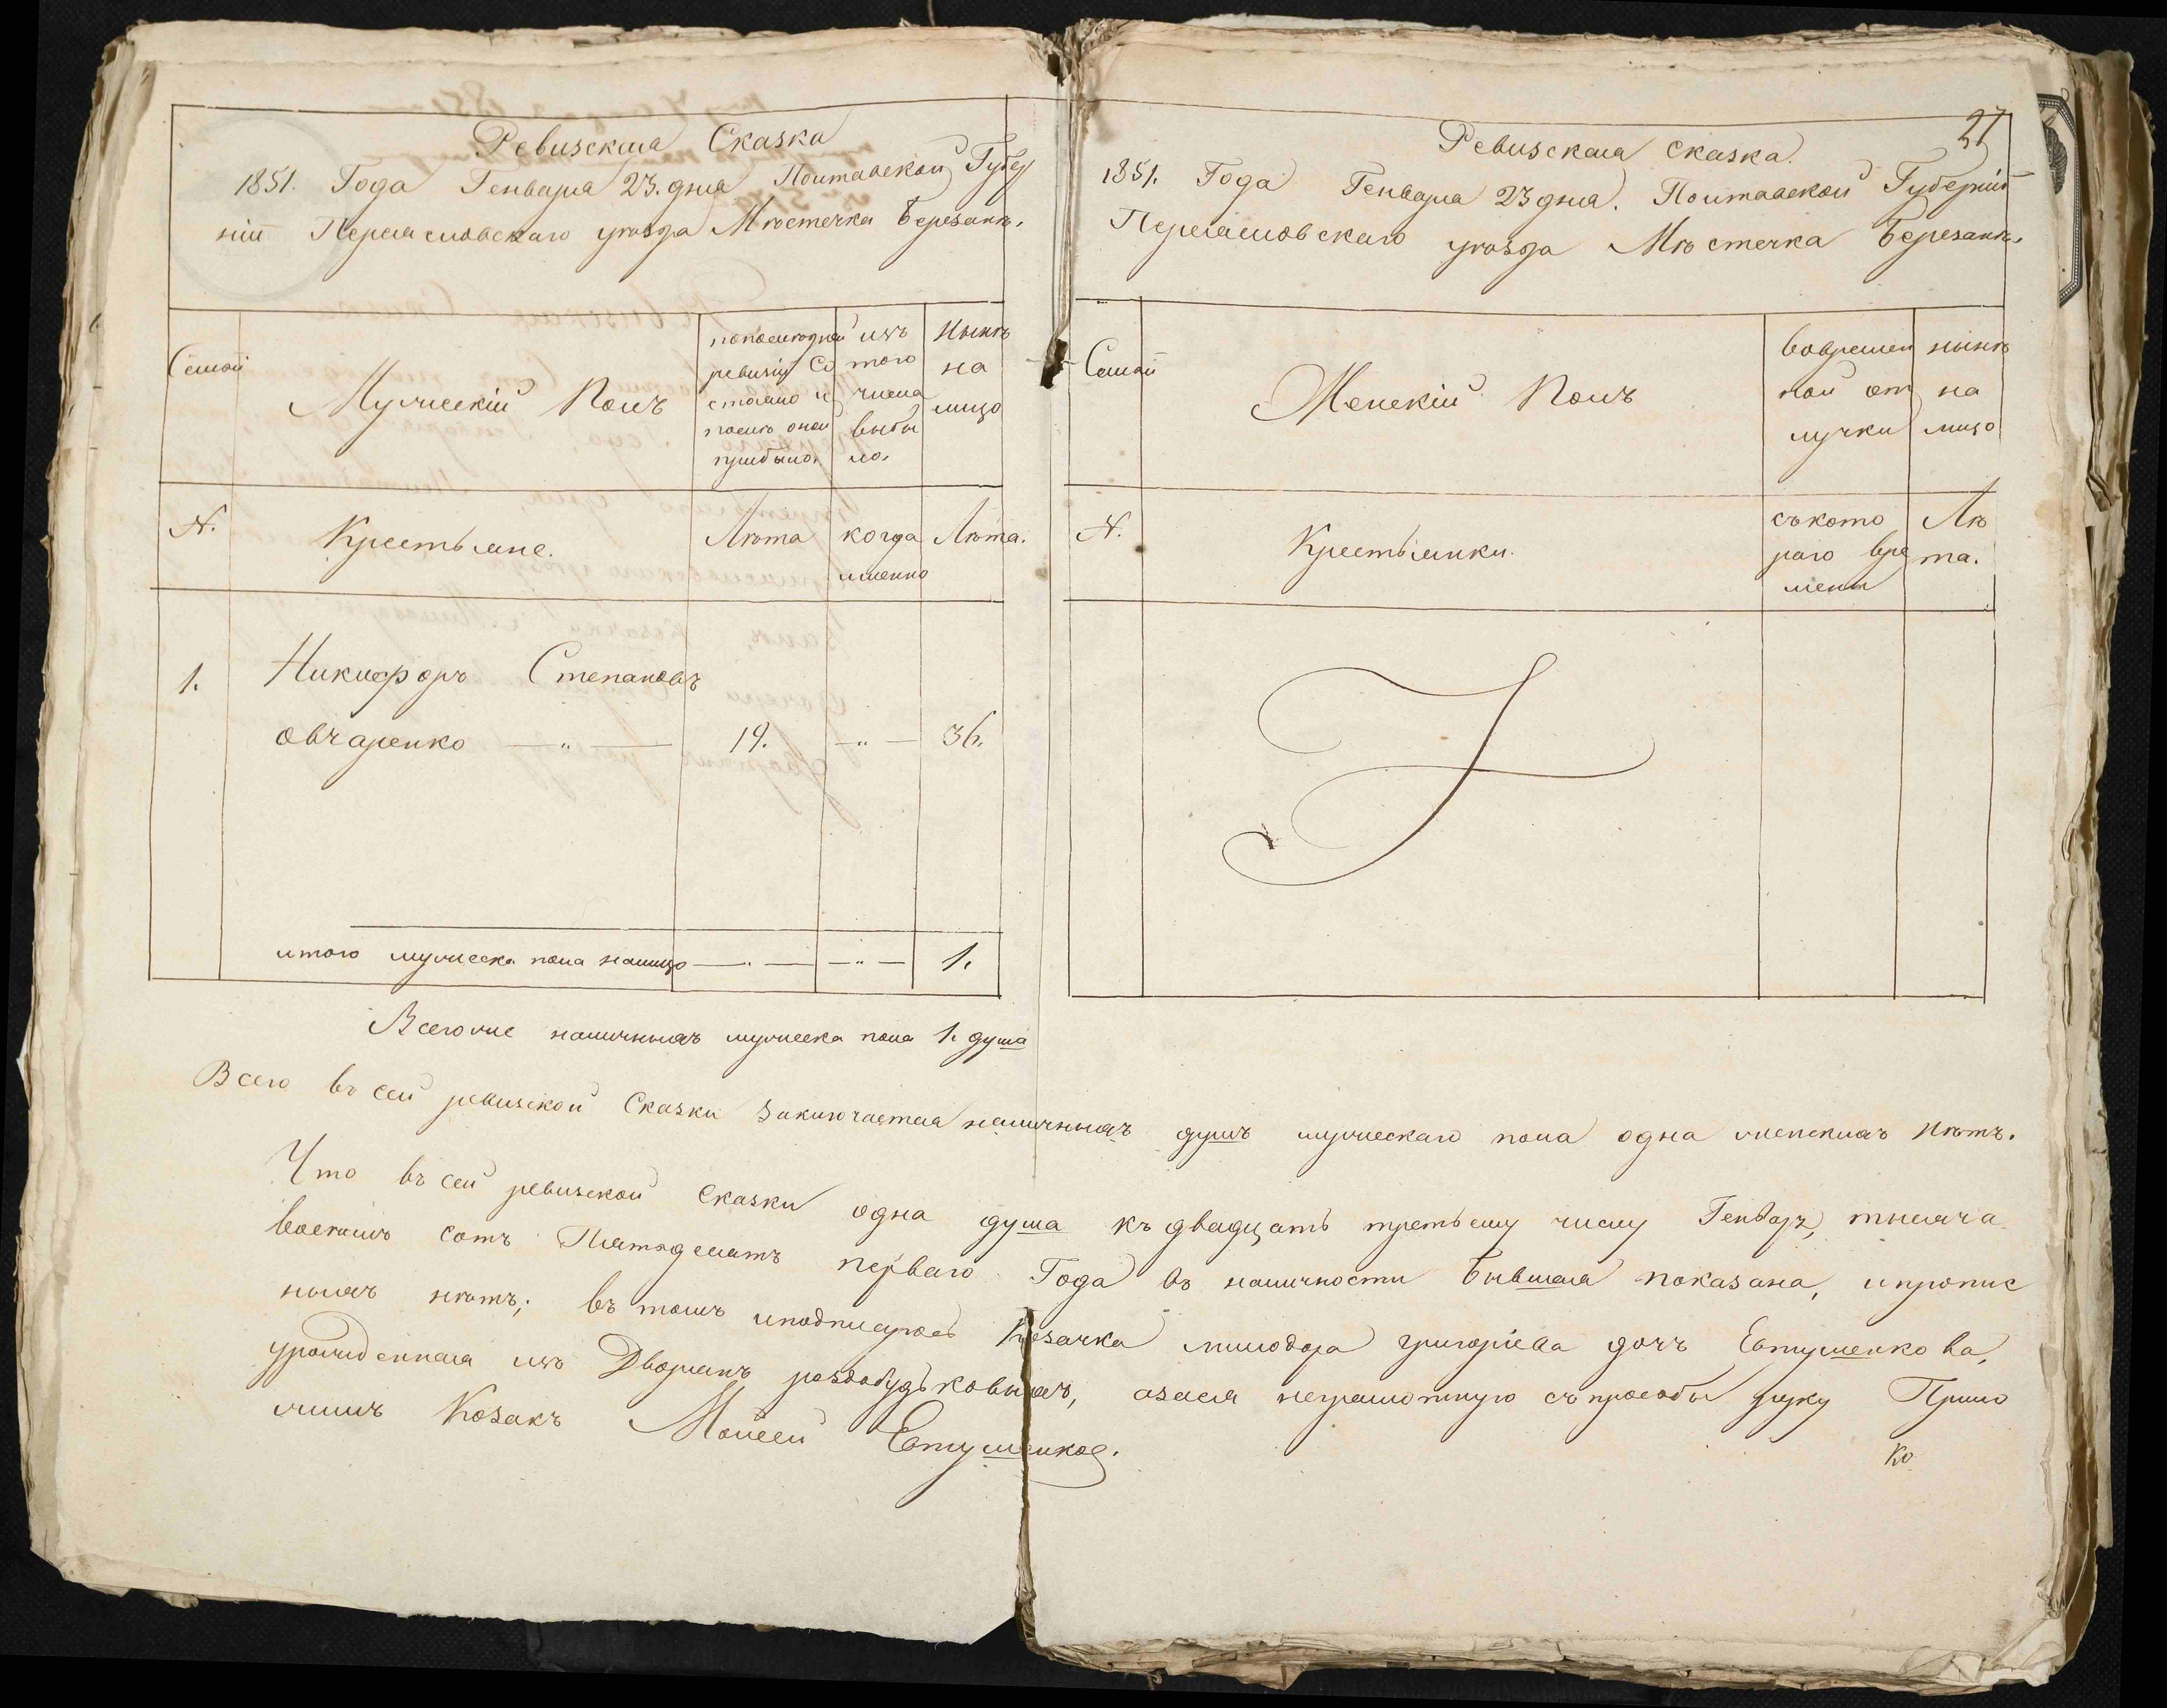 Ревизская Сказка
1851. Года Генваря 23. дня Полтавской Губер
ніи Переясловскаго уѣзда Мѣстечка Березани.
Семьи
Мужескій Полъ
попослѣдней
ревизіи Со
стояло и
послѣ оной
прибыло.
изъ
того
числа
выбы
ло.
Нынѣ
на
лицо
N.
Крестьяне.
Лѣта
когда
именно
Лѣта.
1. Никифоръ Степановъ
овчаренко —"— 19. —"— 36.
итого мужеска пола налицо —"— —"— 1.
Всегоже наличныхъ мужеска пола 1. душа
27
Ревизская Сказка.
1851. Года Генваря 23 дня. Полтавской Губерніи
Переясловскаго уѣзда Мѣстечка Березани.
Семьи
Женскій Полъ
вовремен
ной от
лучки
нынѣ
на
лицо
N.
Крестьянки.
съкото
раго вре
мени
Лѣ
та.
Всего въ сей ревизской Сказки Заключается наличныхъ душъ мужескаго пола одна женскихъ Нѣтъ.
Что въ сей ревизской Сказки одна душа къ двадцать третьему числу Генвар, тысяча
восемъ сотъ Пятьдесятъ перваго Года въ наличности бывшая показана, и пропис
ныхъ нѣтъ; въ томъ иподписуюсь Козачка милодора григоріева дочъ Евтушенкова,
урожденная изъ Дворянъ роздобудьковыхъ, азася неграмотную съпрозбы руку Прило
жилъ Козакъ Мойсей Евтушенков.
Ко